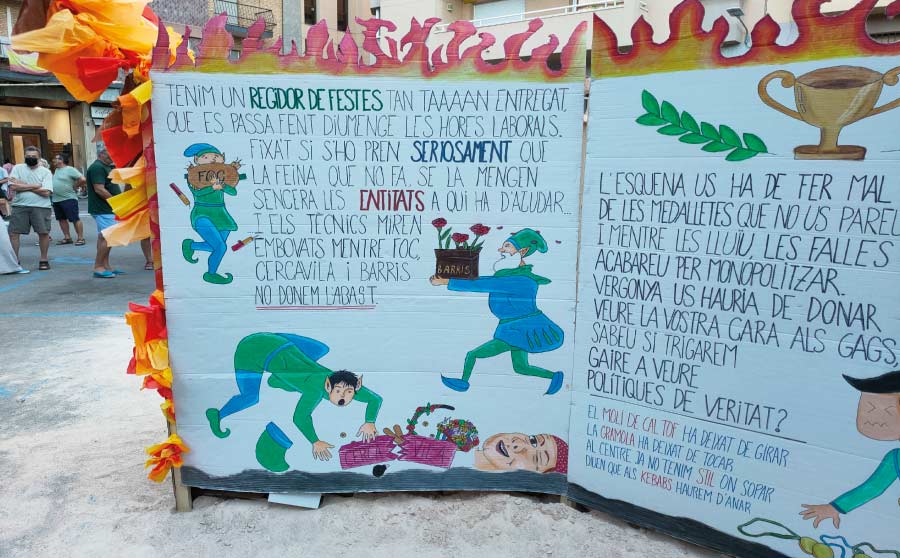 TENIM UN REGIDOR DE FESTES TAN TAAAAN ENTREGAT
QUE ES PASSA FENT DIUMENGE LES HORES LABORALS.
FIXA'T SI S'HO PREN SERIOSAMENT QUE
LA FEINA QUE NO FA, SE LA MENGEN
SENCERA LES ENTITATS A QUI HA D'AJUDAR...
I ELS TÈCNICS MIREN
EMBOVATS MENTRE FOC,
CERCAVILA I BARRIS
NO DONEM L'ABAST.
FOC
BARRIS
L'ESQUENA US HA DE FER MAL
DE LES MEDALLETES QUE NO US PAREU
I MENTRE LES LLUÏU, LES FALLES
ACABAREU PER MONOPOLITZAR.
VERGONYA US HAURIA DE DONAR
VEURE LA VOSTRA CARA ALS GAGS,
SABEU SI TRIGAREM
GAIRE A VEURE
POLÍTIQUES DE VERITAT?
EL MOLÍ DE CAL TOF HA DEIXAT DE GIRAR
LA GRAMOLA HA DEIXAT DE TOCAR
AL CENTRE JA NO TENIM STIL ON SOPAR
DIUEN QUE ALS KEBABS HAUREM D'ANAR